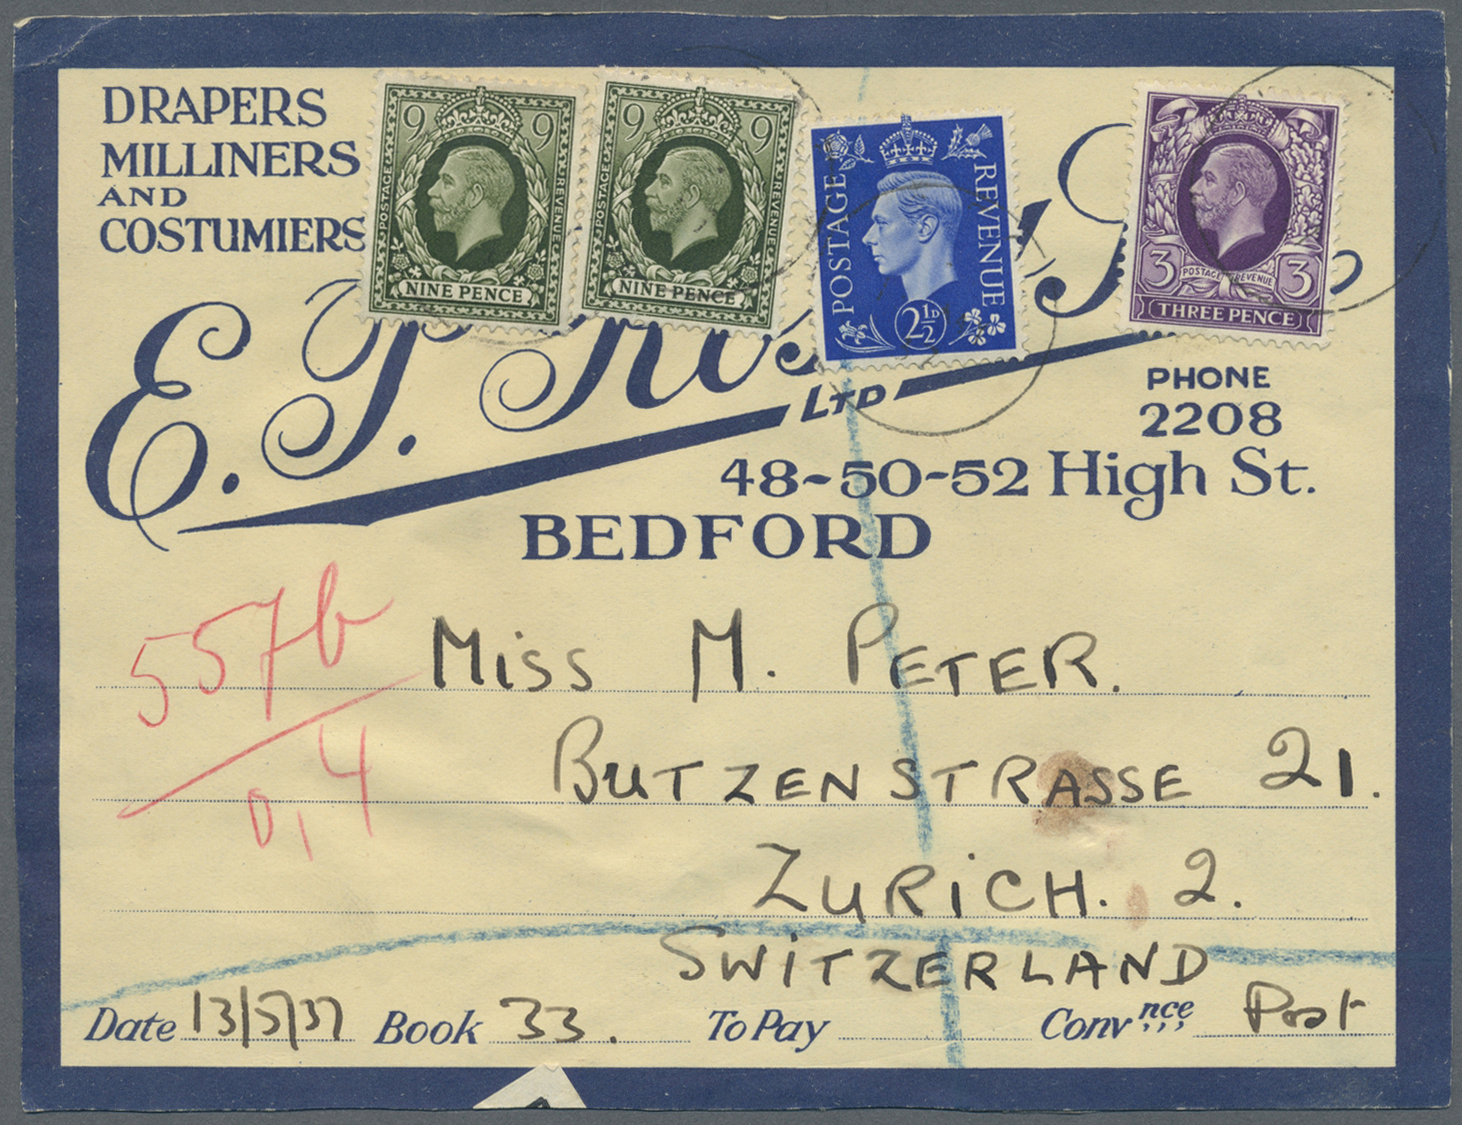 DRAPERS
MILLINERS
AND
COSTUMIERS
9 9
POSTAGE REVENUE
NINE PENCE
9 9
POSTAGE REVENUE
NINE PENCE
POSTAGE REVENUE
2½D
3 POSTAGE REVENUE 3
THREE PENCE
E. P.
LTD
PHONE
2208
48-50-52 High St.
BEDFORD
557b
0,4
MISS M. PETER.
BUTZENSTRASSE 21.
ZURICH. 2.
SWITZERLAND
Date 13/5/37 Book 33. To Pay Conv nce Post